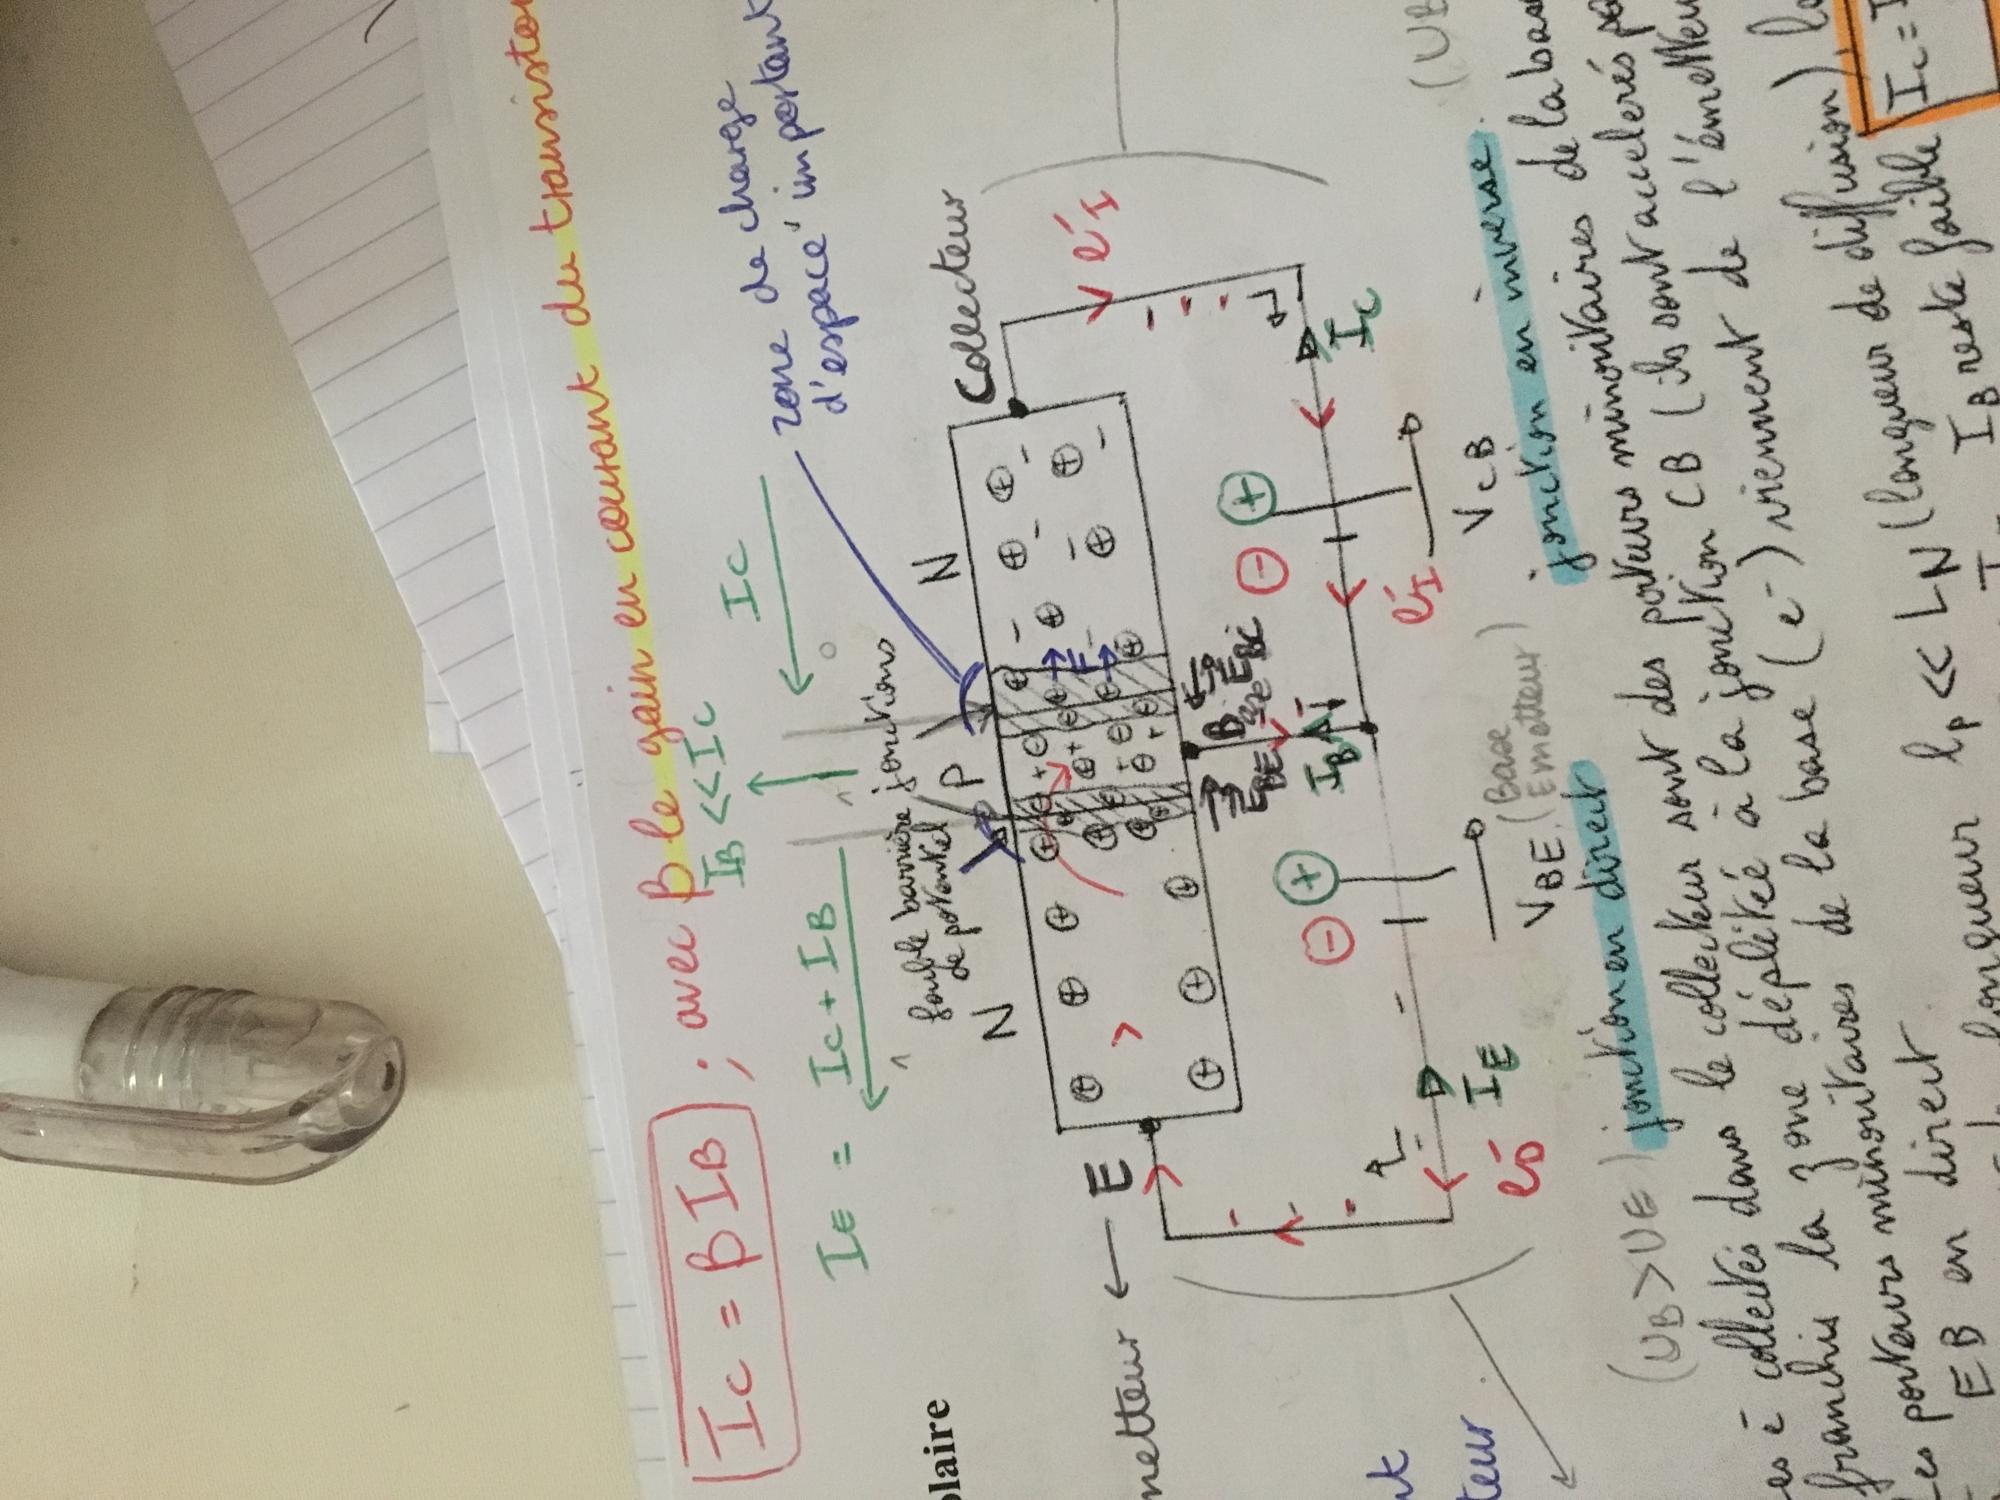 Ic = β IB ; avec β le gain en courant du transistor
IB << Ic
IE = Ic + IB
Ic
zone de charge
d'espace important
faible barrière
de potentiel
jonctions
N
P
N
Collecteur
olaire
metteur ← E
E
Base
EBE
EBC
IB
é I
Ic
é I
IE
é D
VBE (Base
Emetteur)
VCB
nt
teur
(UB > UE) jonction en direct
(UB
jonction en inverse.
es é collectés dans le collecteur sont des porteurs minoritaires de la base
franchis la zone déplétée à la jonction CB (ils sont accelerés
es porteurs minoritaires de la base (e-) viennent de l'émetteur
EB en direct
longueur lp << LN (longueur de diffusion)
IB reste faible
Ic = I